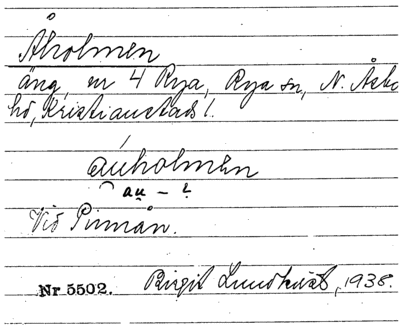 Åholmen
äng, nr 4 Rya, Rya sn, N. Åsbo
hd, Kristianstads l.
áuholmen
au – e
Vid Pinnån.
Nr 5502. Birgit Lundkvist, 1938.